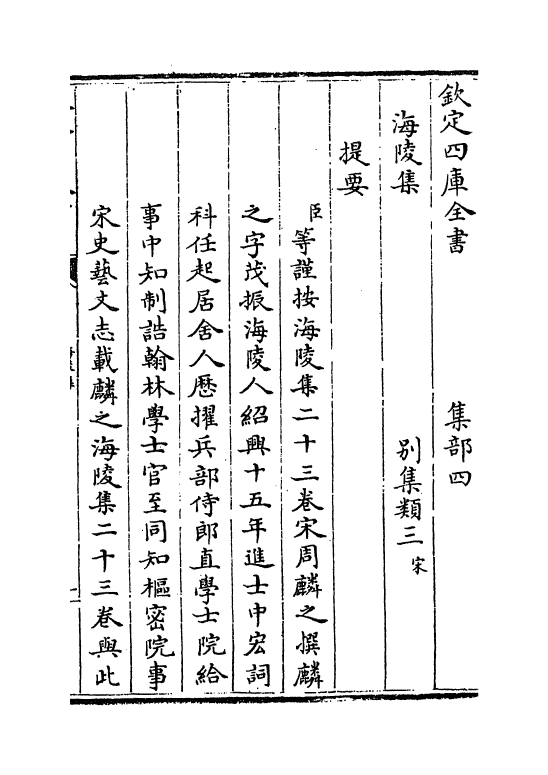 欽定四庫全書　集部四
海陵集　別集類三宋
提要
臣等謹按海陵集二十三卷宋周麟之撰麟
之字茂振海陵人紹興十五年進士中宏詞
科任起居舍人歷擢兵部侍郎直學士院給
事中知制誥翰林學士官至同知樞密院事
宋史藝文志載麟之海陵集二十三卷與此